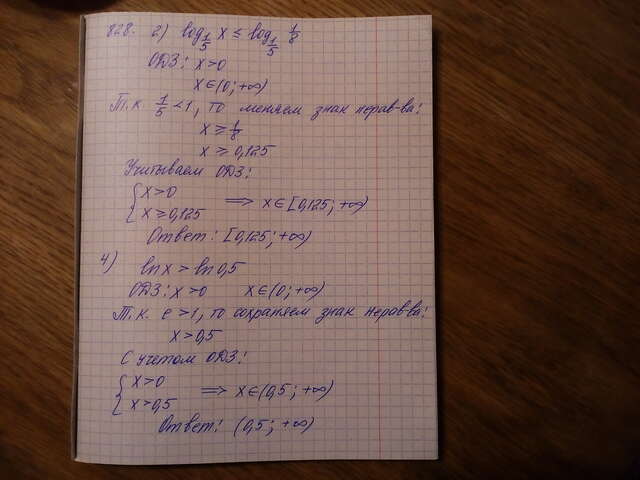 828. 2) log 1/5 x ≤ log 1/5 1/8
ОДЗ: x>0
x∈(0; +∞)
Т.к. 1/5 <1, то меняем знак нерав-ва:
x ≥ 1/8
x ≥ 0,125
Учитываем ОДЗ:
{ x>0
x ≥ 0,125 ⟹ x∈[0,125; +∞)
Ответ: [0,125; +∞)
4) ln x > ln 0,5
ОДЗ: x>0 x∈(0; +∞)
Т.к. e >1, то сохраняем знак нерав-ва:
x>0,5
С учетом ОДЗ:
{ x>0
x>0,5 ⟹ x∈(0,5; +∞)
Ответ: (0,5; +∞)